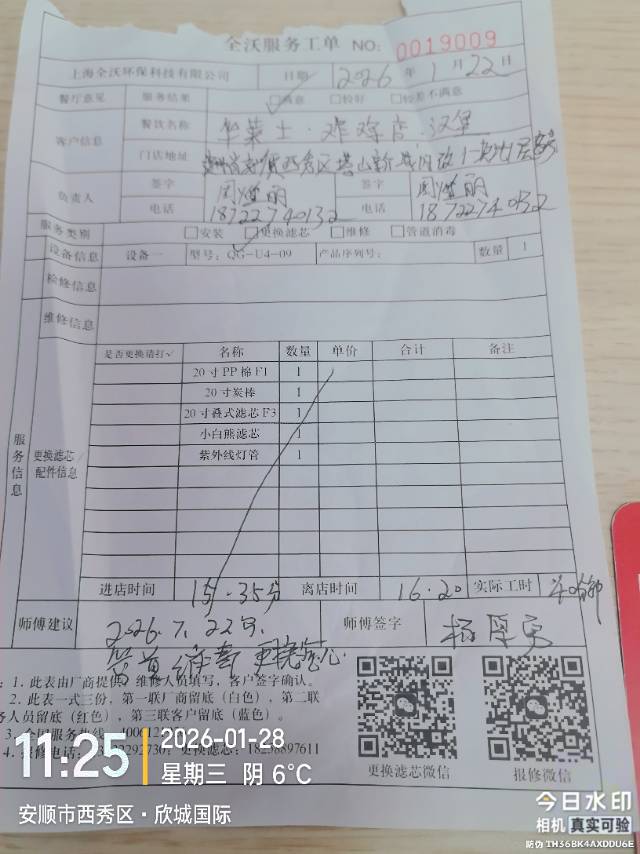 全沃服务工单 NO: 0019009
上海全沃环保科技有限公司 日期 2026年1月22日
餐厅意见 服务结果 ☑满意 □较好 □较差不满意
客户信息 餐饮名称 华莱士·炸鸡店·汉堡
门店地址 贵州省 西秀区塔山新
负责人 签字 周 丽 签字 周 丽
电话 18722740132 电话 18722740132
服务类别 □安装 ☑更换滤芯 □维修 □管道消毒
设备信息 设备一 型号: QG-U4-09 产品序列号: 数量 1
检修信息
维修信息
服务信息 更换滤芯/配件信息
是否更换请打√ 名称 数量 单价 合计 备注
20寸PP棉F1 1
20寸炭棒 1
20寸叠式滤芯F3 1
小白熊滤芯 1
紫外线灯管 1
进店时间 15.35分 离店时间 16.20 实际工时
师傅建议 2026.7.22号. 师傅签字 杨厚勇
更换滤芯.
: 1. 此表由厂商提供,维修人员填写,客户签字确认。
2. 此表一式三份,第一联厂商留底(白色),第二联
务人员留底(红色),第三联客户留底(蓝色)。
3. 全国服务热线
4. 报修电话: 292730,更换滤芯:
更换滤芯微信 报修微信
11:25 2026-01-28
星期三 阴 6℃
安顺市西秀区·欣城国际
今日水印
相机 真实可验
防伪 TH36BK4AXDDU6E